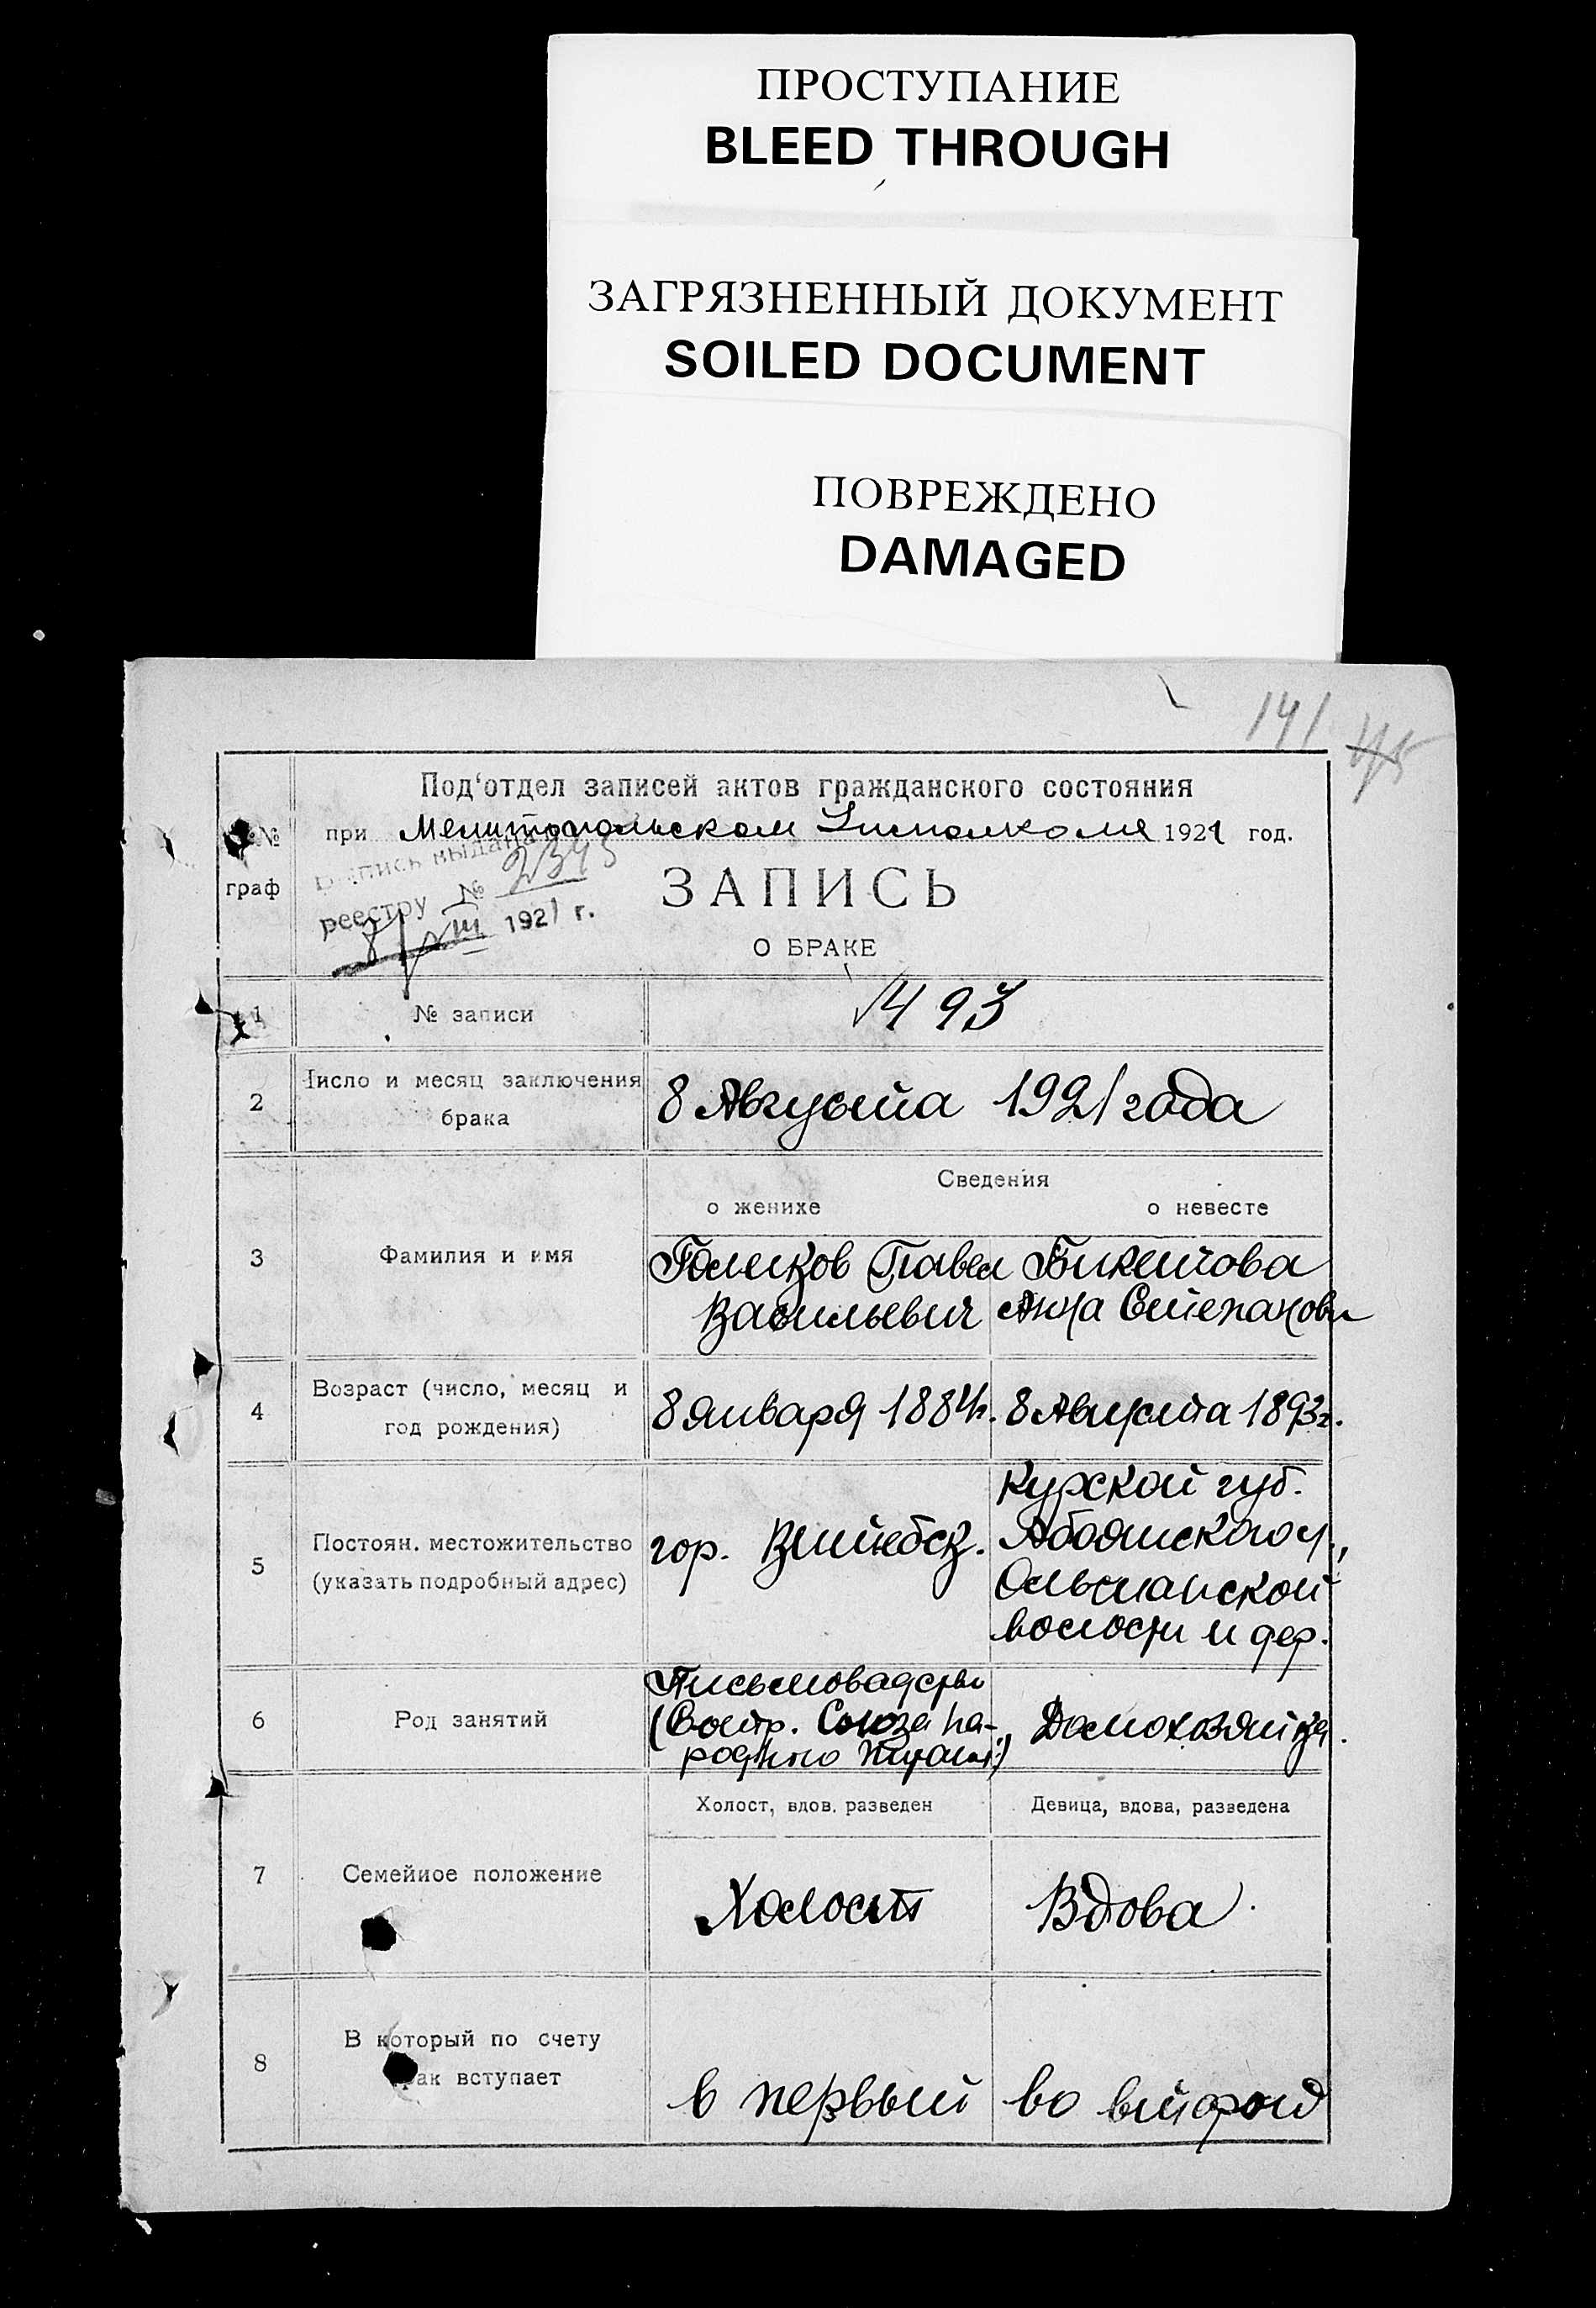 ПРОСТУПАНИЕ
BLEED THROUGH
ЗАГРЯЗНЕННЫЙ ДОКУМЕНТ
SOILED DOCUMENT
ПОВРЕЖДЕНО
DAMAGED
141
Под'отдел записей актов гражданского состояния
№
граф
при Мелитопольском Исполкоме 1921 год.
выдана
реестру № 2345
8/VIII 1921 г.
ЗАПИСЬ
О БРАКЕ
1 № записи 493
2 Число и месяц заключения
брака
8 Августа 1921 года
Сведения
о женихе о невесте
3 Фамилия и имя
Павел
Васильевич
Анна
4 Возраст (число, месяц и
год рождения)
8 января 1884г. 8 Августа 1893г.
5 Постоян. местожительство
(указать подробный адрес)
гор. Витебск.
Курской губ.
волости и дер.
6 Род занятий
Союза на-
Домохозяйка.
7 Семейное положение
Холост, вдов. разведен Девица, вдова, разведена
Холост Вдова.
8 В который по счету
брак вступает
в первый во второй